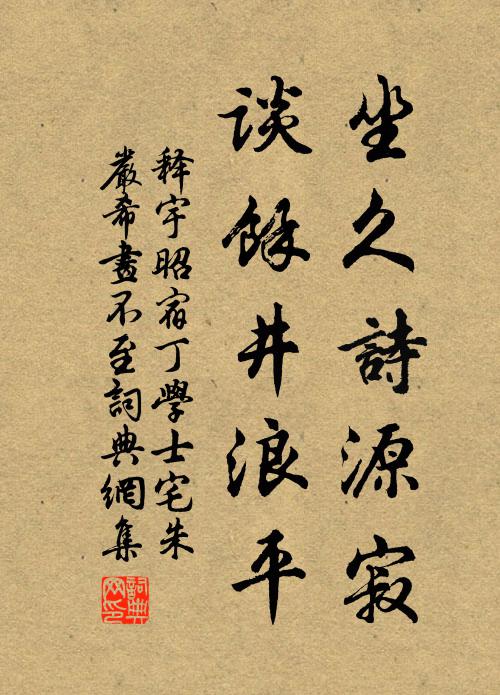 坐久詩源寂
談餘井浪平
释宇昭宿丁學士宅朱
嚴希晝不至詞典網集
詞典
网印